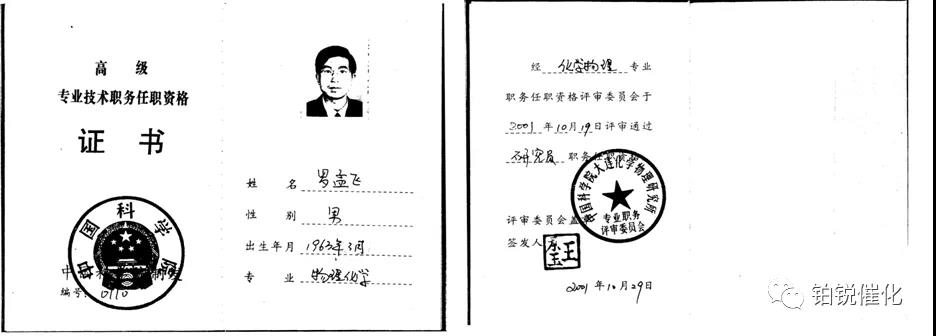 高 级
专业技术职务任职资格
证 书
中国科学院
编号: 0110
姓 名 罗孟飞
性 别 男
出生年月 1963年3月
专 业 物理化学
经 化学物理 专业
职务任职资格评审委员会于
2001 年 10 月 19 日评审通过
研究员 职务任职资格
中国科学院大连化学物理研究所
专业职务
评审委员会
评审委员会盖
签发人
2001 年 10 月 29 日
铂锐催化